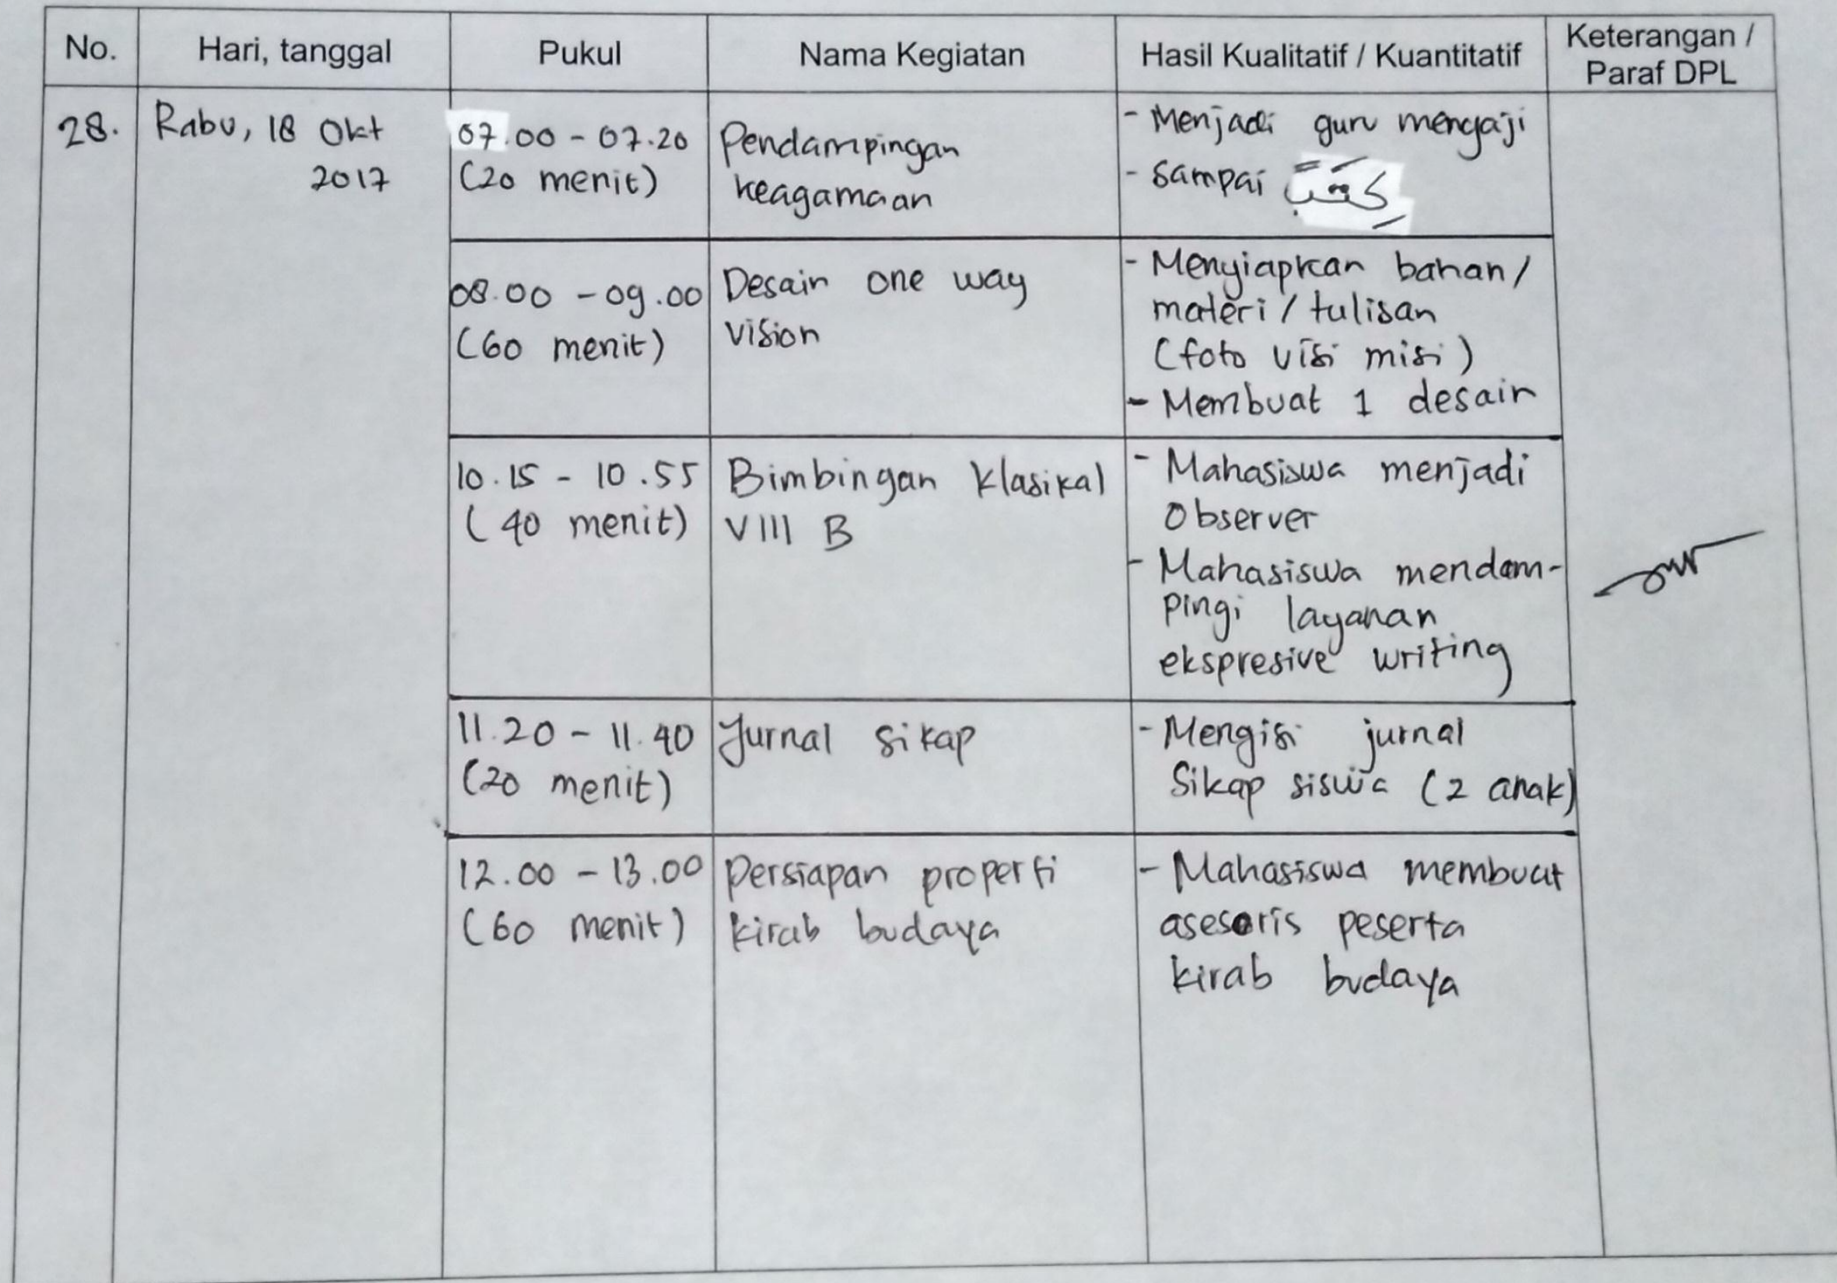 No.
Hari, tanggal
Pukul
Nama Kegiatan
Hasil Kualitatif / Kuantitatif
Keterangan /
Paraf DPL
28.
Rabu, 18 Okt
2017
07.00 - 07.20
(20 menit)
Pendampingan
keagamaan
- Menjadi guru mengaji
- Sampai
08.00 - 09.00
(60 menit)
Desain one way
vision
- Menyiapkan bahan/
materi / tulisan
(foto visi misi)
- Membuat 1 desain
10.15 - 10.55
(40 menit)
Bimbingan Klasikal
VIII B
- Mahasiswa menjadi
Observer
- Mahasiswa mendam-
pingi layanan
ekspresive writing
11.20 - 11.40
(20 menit)
Jurnal sikap
- Mengisi jurnal
Sikap siswa (2 anak)
12.00 - 13.00
(60 menit)
Persiapan properti
kirab budaya
- Mahasiswa membuat
asesoris peserta
kirab budaya